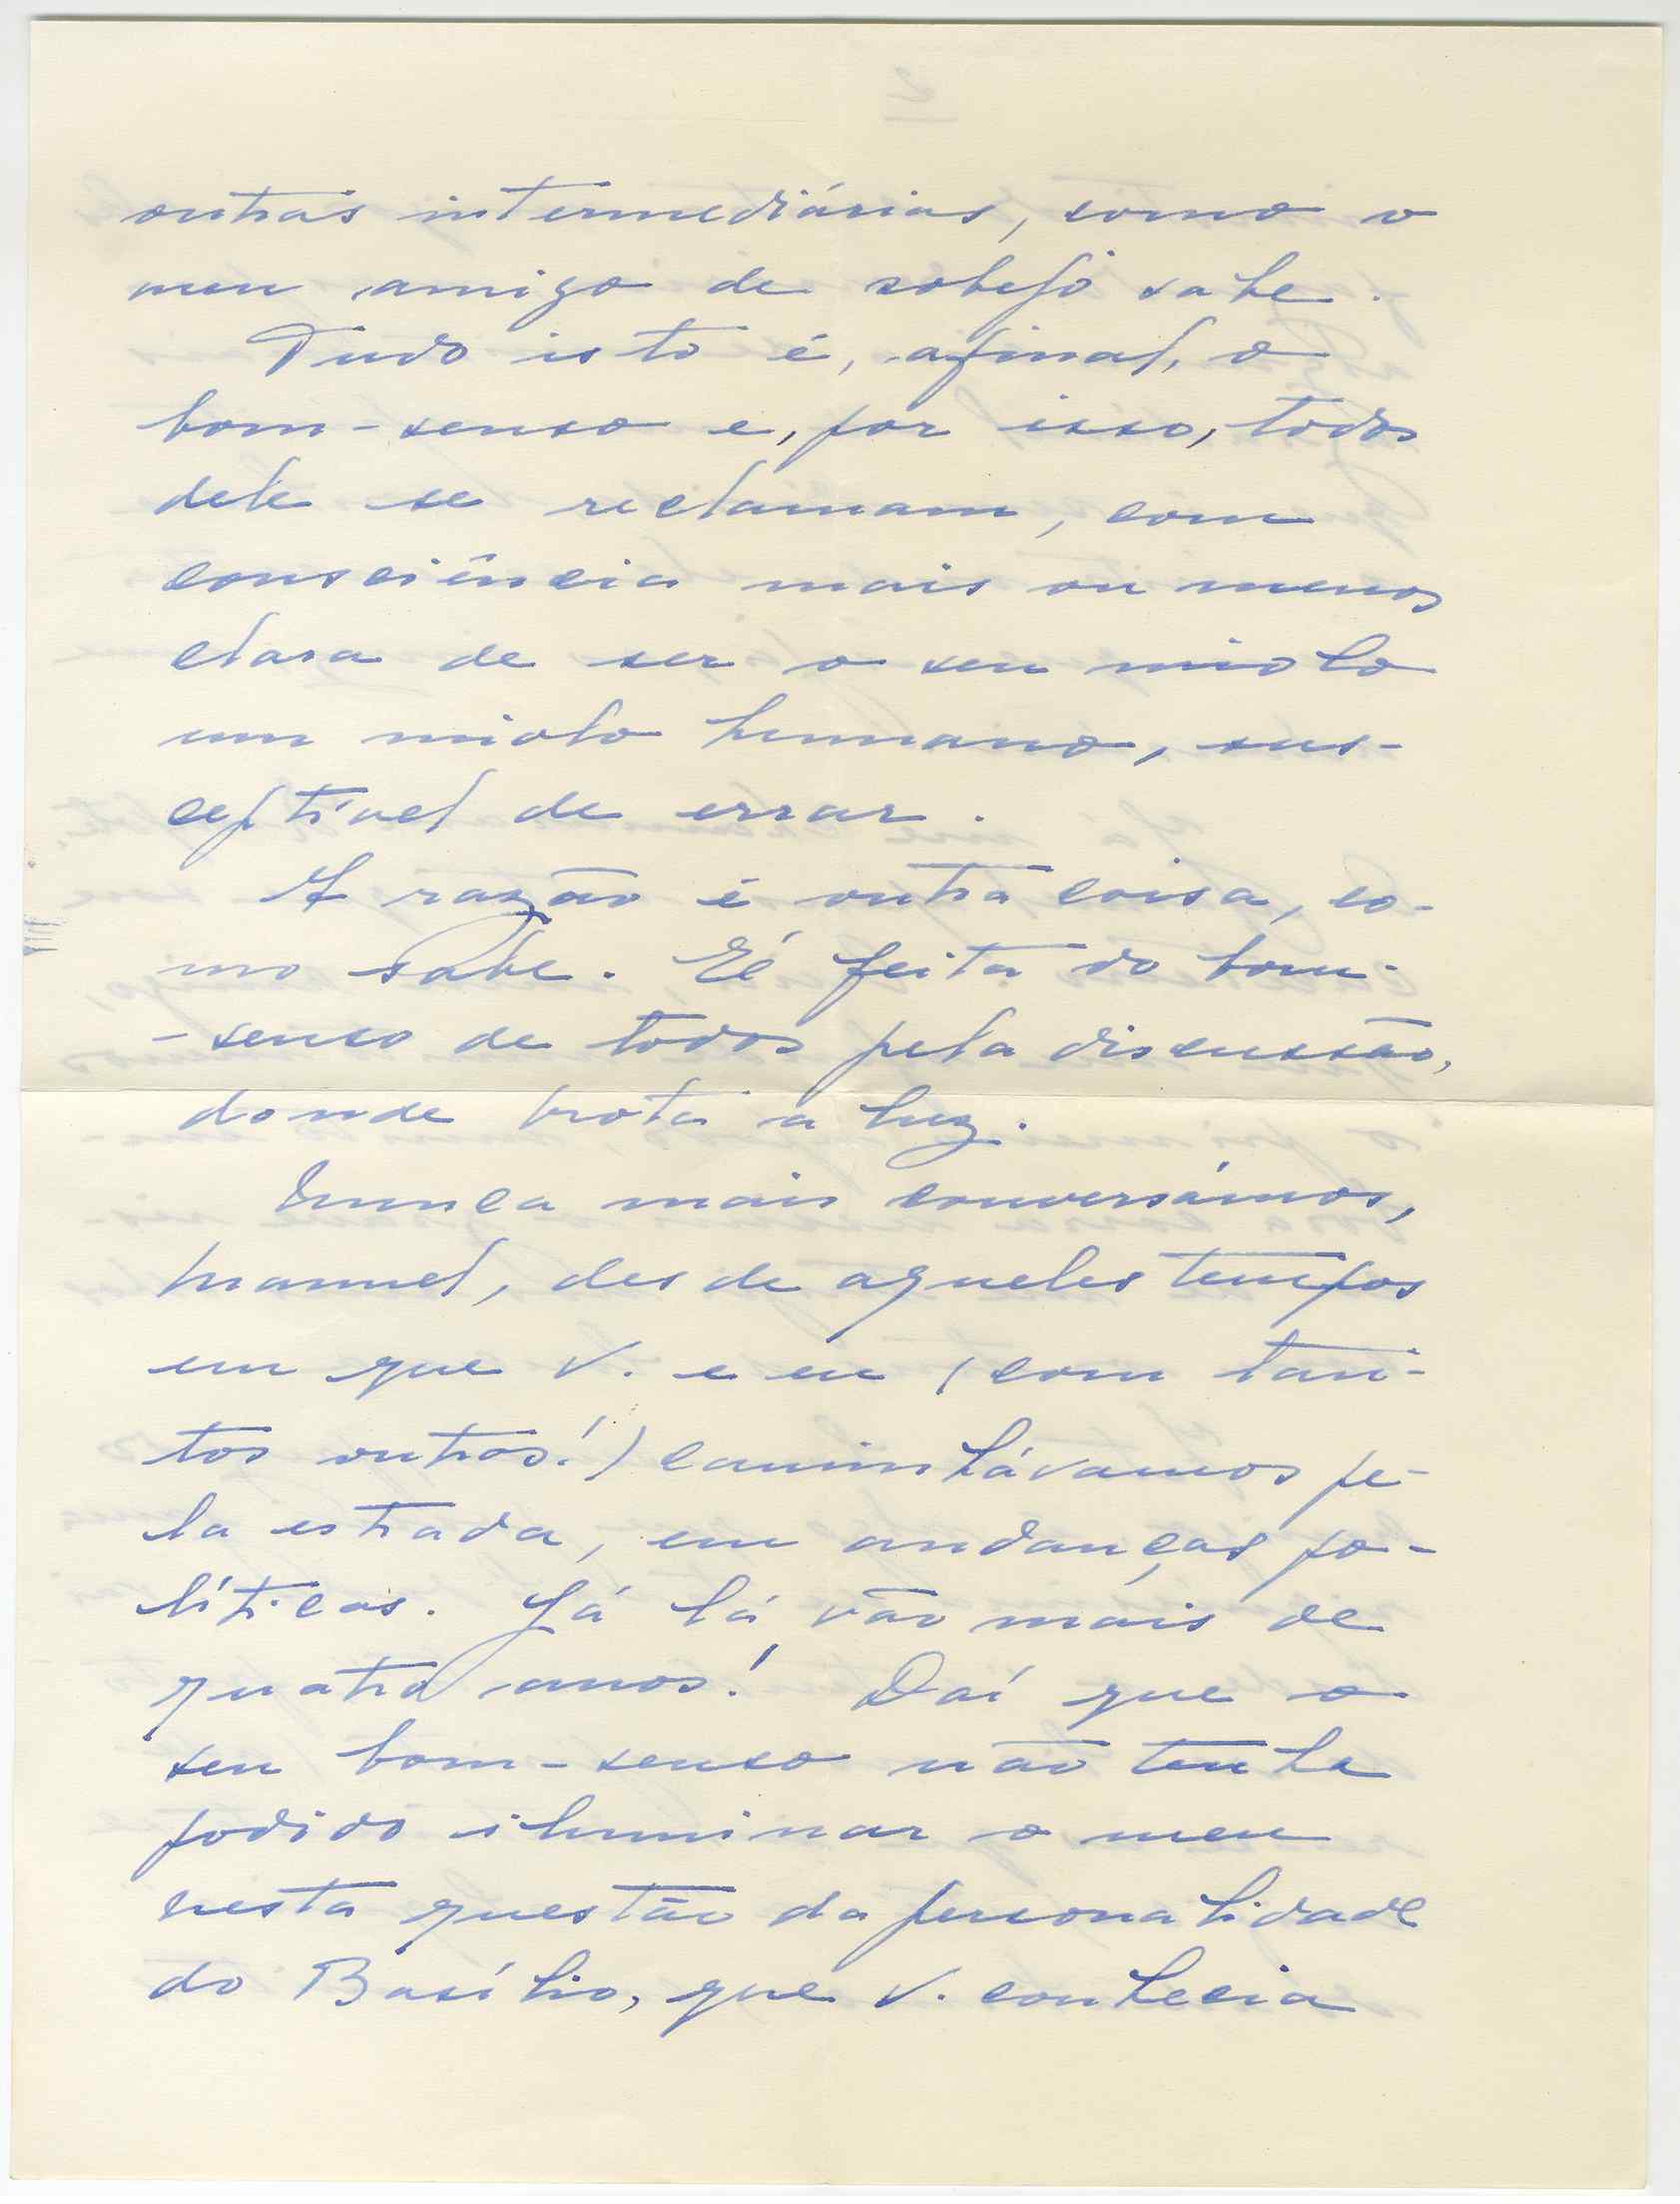 outras intermediárias, como o
meu amigo de sobejo sabe.
Tudo isto é, afinal, o
bom-senso e, por isso, todos
dele se reclamam, com
consciência mais ou menos
clara de ser o seu miolo
um miolo humano, sus-
ceptível de errar.
A razão é outra coisa, co-
mo sabe. É feita do bom-
-senso de todos pela discussão,
donde brota a luz.
Nunca mais conversámos,
Manuel, desde aqueles tempos
em que V. e eu (com tan-
tos outros!) caminhávamos pe-
la estrada, em andanças po-
líticas. Já lá vão mais de
quatro anos! Daí que o
seu bom-senso não tenha
podido iluminar o meu
nesta questão da personalidade
do Basílio, que V. conhecia